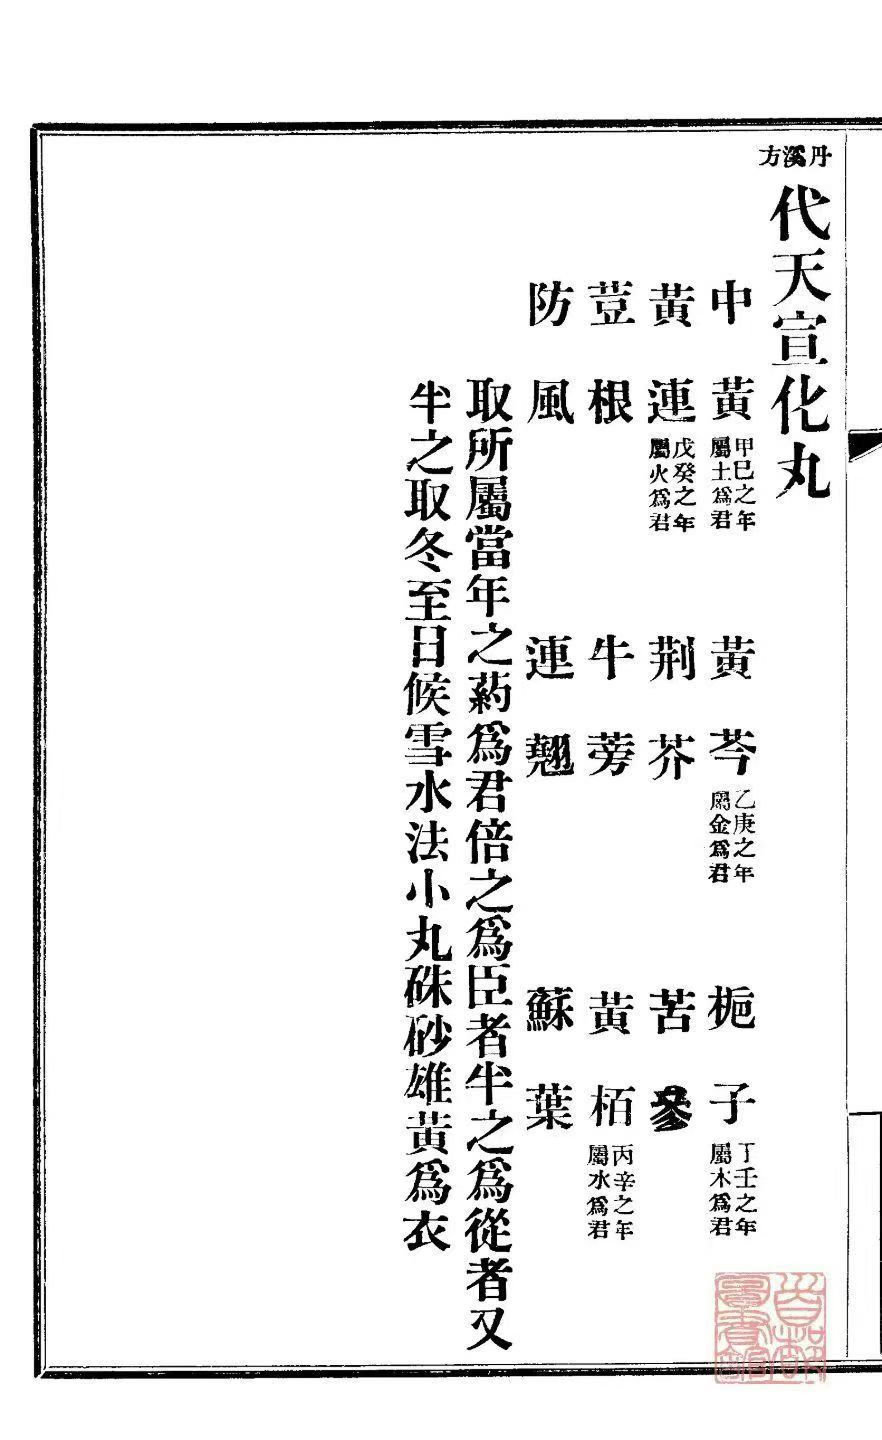 丹溪方
代天宣化丸
中黃甲巳之年屬土爲君 黃芩乙庚之年屬金爲君 梔子丁壬之年屬木爲君
黃連戊癸之年屬火爲君 荆芥 苦參
荳根 牛蒡 黃栢丙辛之年屬水爲君
防風 連翹 蘇葉
取所屬當年之葯爲君倍之爲臣者半之爲從者又
半之取冬至日候雪水法小丸硃砂雄黃爲衣